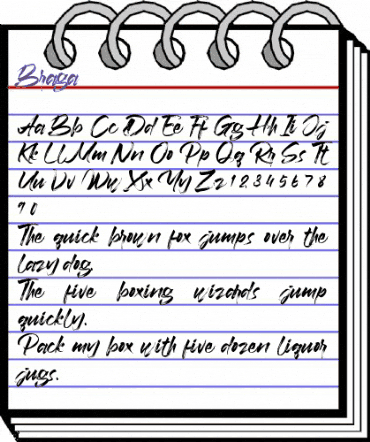 Braga
Aa Bb Cc Dd Ee Ff Gg Hh Ii Jj
Kk Ll Mm Nn Oo Pp Qq Rr Ss Tt
Uu Vv Ww Xx Yy Zz 1 2 3 4 5 6 7 8
9 0
The quick brown fox jumps over the
lazy dog.
The five boxing wizards jump
quickly.
Pack my box with five dozen liquor
jugs.